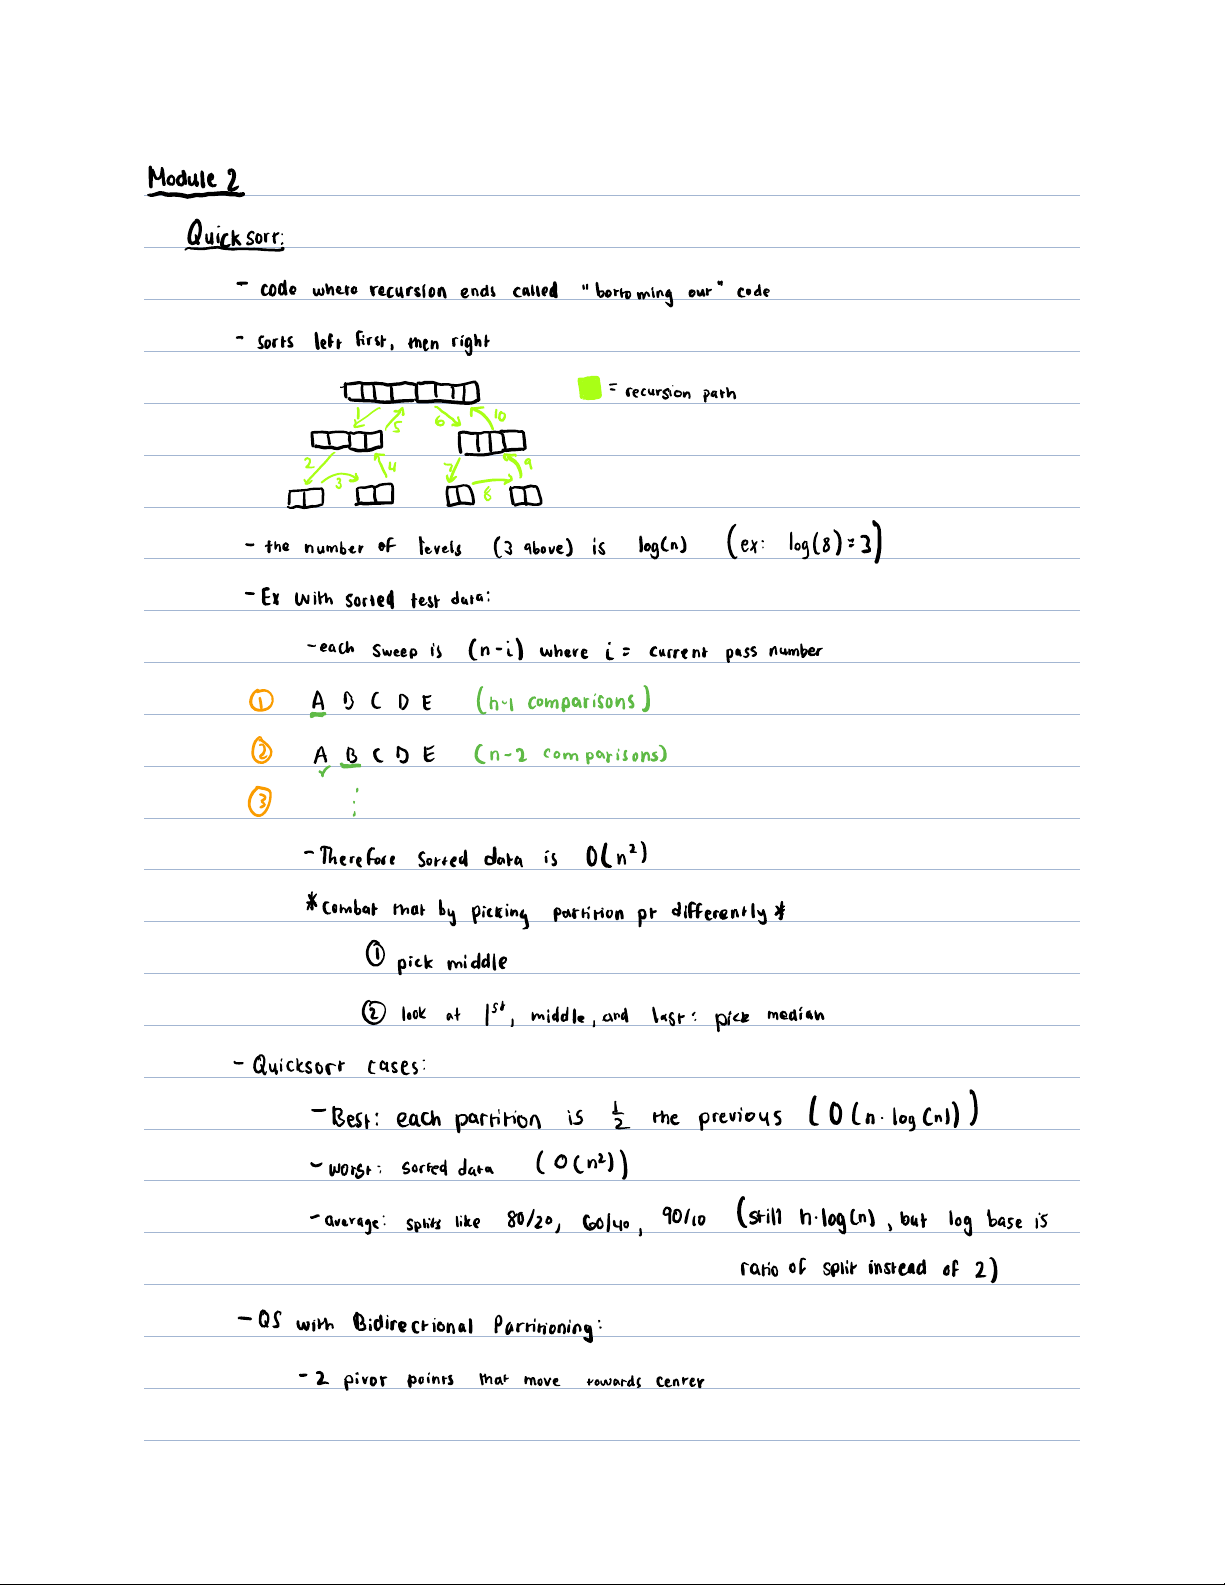 Module 2
Quicksort:
- code where recursion ends called "bottoming out" code
- sorts left first, then right
= recursion path
1 5 6 10
2 3 4 7 8 9
- the number of levels (3 above) is log(n) (ex: log(8)=3)
- Ex with sorted test data:
- each sweep is (n-i) where i = current pass number
① A B C D E (n-1 comparisons)
② A B C D E (n-2 comparisons)
✓
③ ⋮
- Therefore sorted data is O(n²)
* combat that by picking partition pt differently *
① pick middle
② look at 1st, middle, and last: pick median
- Quicksort cases:
- Best: each partition is 1/2 the previous (O(n·log(n)))
- worst: sorted data (O(n²))
- average: splits like 80/20, 60/40, 90/10 (still n·log(n), but log base is
ratio of split instead of 2)
- QS with Bidirectional Partitioning:
- 2 pivot points that move towards center